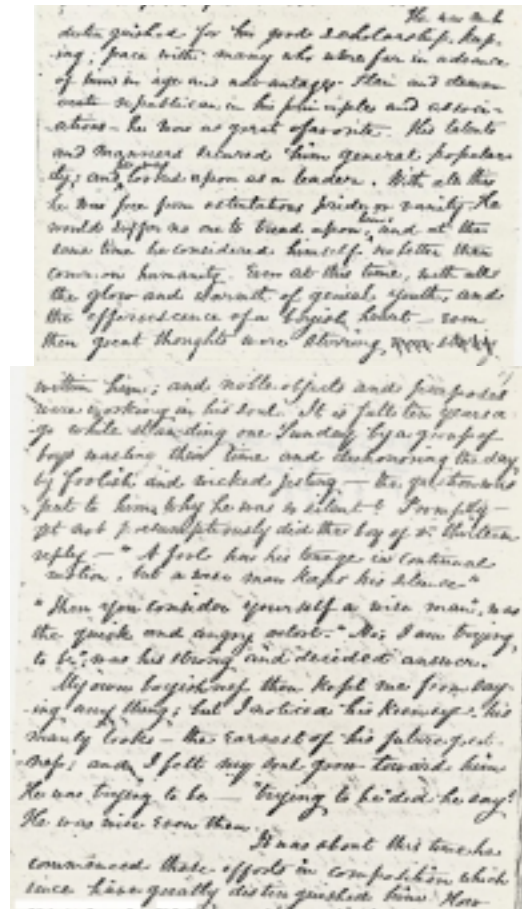 He was much
distinguished for his good scholarship, keep-
ing, pace with many who were far in advance
of him in age and advantages. Plain and demo-
cratic republican in his principles and associ-
ations - he was a great favorite. His talents
and manners secured him general populari-
ty; and looked upon as a leader. With all this
he was free from ostentatious pride, or vanity. He
would suffer no one to tread upon him, and at the
same time he considered himself no better than
common humanity. Even at this time, with all
the glow and warmth of genial youth, and
the effervescence of a boyish heart - even
then great thoughts were stirring
within him; and noble objects and purposes
were working in his soul. It is full ten years a-
go while standing one Sunday by a group of
boys wasting their time and dishonoring the day
by foolish and wicked jesting - the question was
put to him, why he was so silent? Promptly -
yet not presumptuously did the boy of thirteen
reply - "A fool has his tongue in continual
motion, but a wise man keeps his silence"
"Then you consider yourself a wise man", was
the quick and angry retort. "No; I am trying,
to be", was his strong and decided answer.
My own boyishness then kept me from say-
ing any thing; but I noticed his keen eye - his
manly looks - the earnest of his future great-
ness; and I felt my soul grow toward him
He was trying to be - "trying to be" did he say?
He was wise even then
It was about this time he
commenced those efforts in composition which
since have greatly distinguished him. How